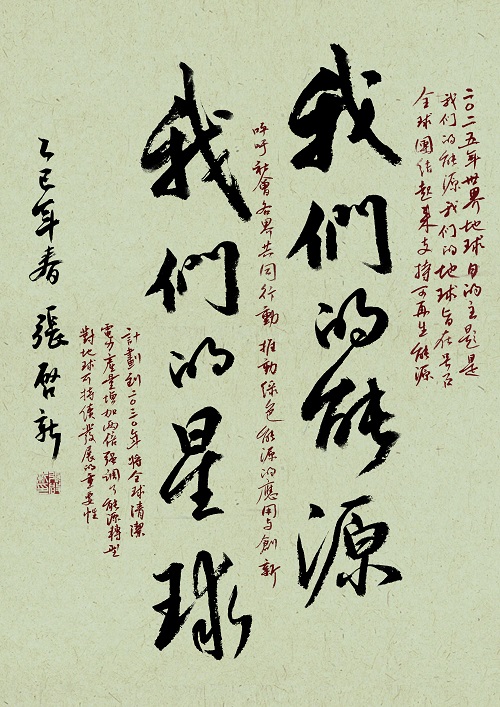 二〇二五年世界地球日的主題是
我们的能源我们的地球旨在号召
全球團结起来支持可再生能源
我們的能源
呼吁社會各界共同行動 推動绿色能源的應用与創新
我們的星球
計劃到二〇三〇年將全球清潔
電力產量增加两倍强調了能源轉型
對地球可持续發展的重要性
乙巳年春 張啓新